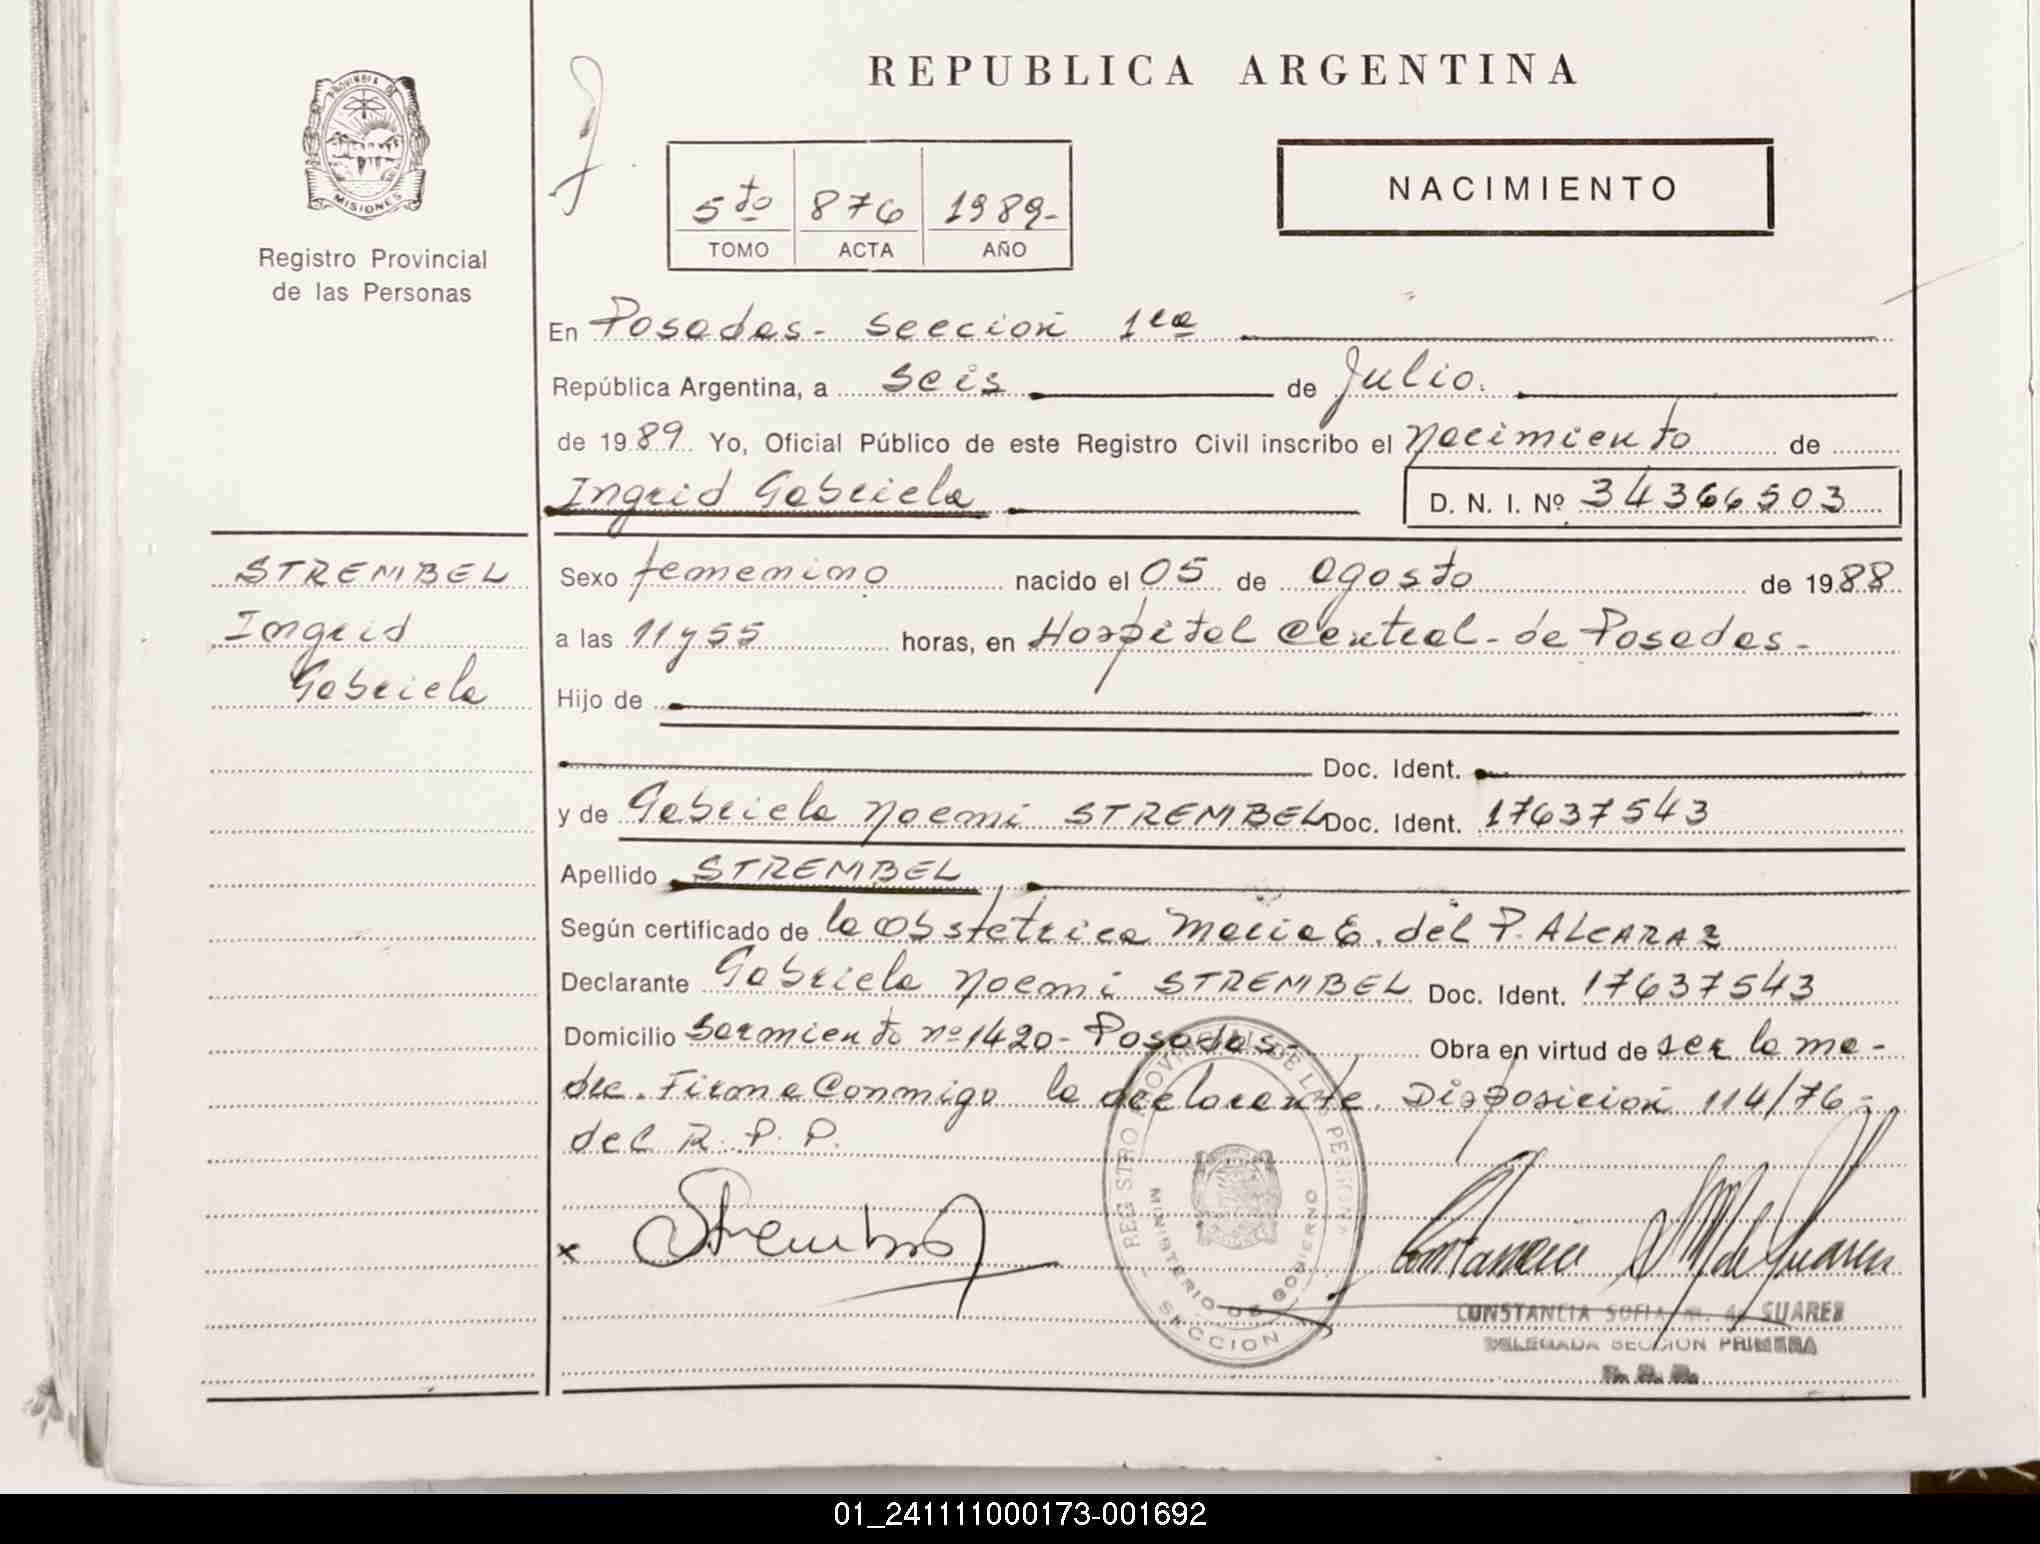 REPUBLICA ARGENTINA
PROVINCIA DE MISIONES
Registro Provincial
de las Personas
5to 876 1989-
TOMO ACTA AÑO
NACIMIENTO
En Posadas- Sección 1ra
República Argentina, a seis de Julio.
de 1989 Yo, Oficial Público de este Registro Civil inscribo el nacimiento de
Ingrid Gabriela D. N. I. Nº 34366503
STREMBEL
Ingrid
Gabriela
Sexo femenino nacido el 05 de agosto de 1988
a las 11 y 55 horas, en Hospital Central - de Posadas -
Hijo de
Doc. Ident.
y de Gabriela Noemi STREMBEL Doc. Ident. 17637543
Apellido STREMBEL
Según certificado de la Obstetrica Maria E. del P. ALCARAZ
Declarante Gabriela Noemi STREMBEL Doc. Ident. 17637543
Domicilio Sarmiento nº 1420 - Posadas- Obra en virtud de ser la ma-
dre. Firma Conmigo la declarante. Disposición 114/76-
del R. P. P.
x Strembel
REGISTRO PROVINCIAL DE LAS PERSONAS
MINISTERIO DE GOBIERNO
SECCION
Constancia S M de Suarez
CONSTANCIA SOFIA M. de SUAREZ
DELEGADA SECCION PRIMERA
01_241111000173-001692